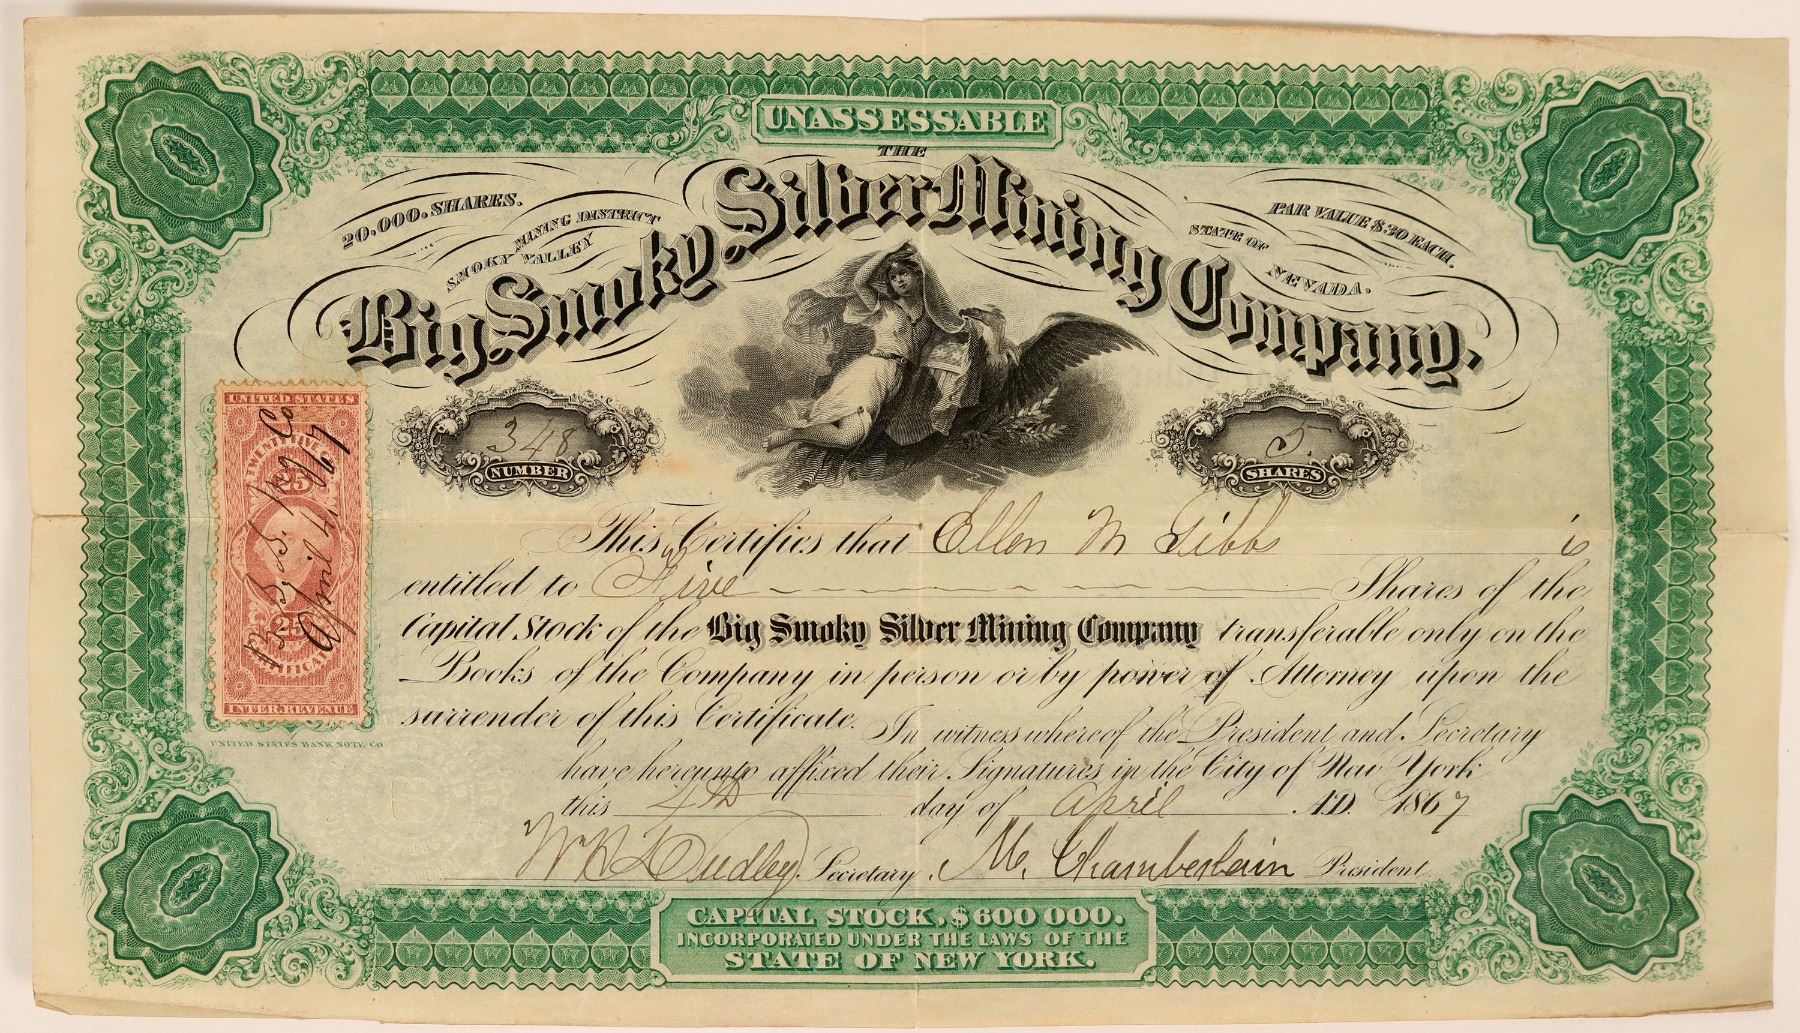 UNASSESSABLE
THE
20,000. SHARES.
MINING DISTRICT
SMOKY VALLEY
PAR VALUE $30 EACH.
STATE OF
NEVADA.
Big Smoky Silver Mining Company.
348
NUMBER
5
SHARES
UNITED STATES
TWENTY FIVE
25
25
INTER. REVENUE
April 4 /67
UNITED STATES BANK NOTE CO
This Certifies that Ellen M Gibbs is
entitled to Five Shares of the
Capital Stock of the Big Smoky Silver Mining Company transferable only on the
Books of the Company in person or by power of Attorney upon the
surrender of this Certificate. In witness whereof the President and Secretary
have hereunto affixed their Signatures in the City of New York
this 4th day of April A.D. 1867
W H Dudley. Secretary. M. Chamberlain President
CAPITAL STOCK, $600 000.
INCORPORATED UNDER THE LAWS OF THE
STATE OF NEW YORK.